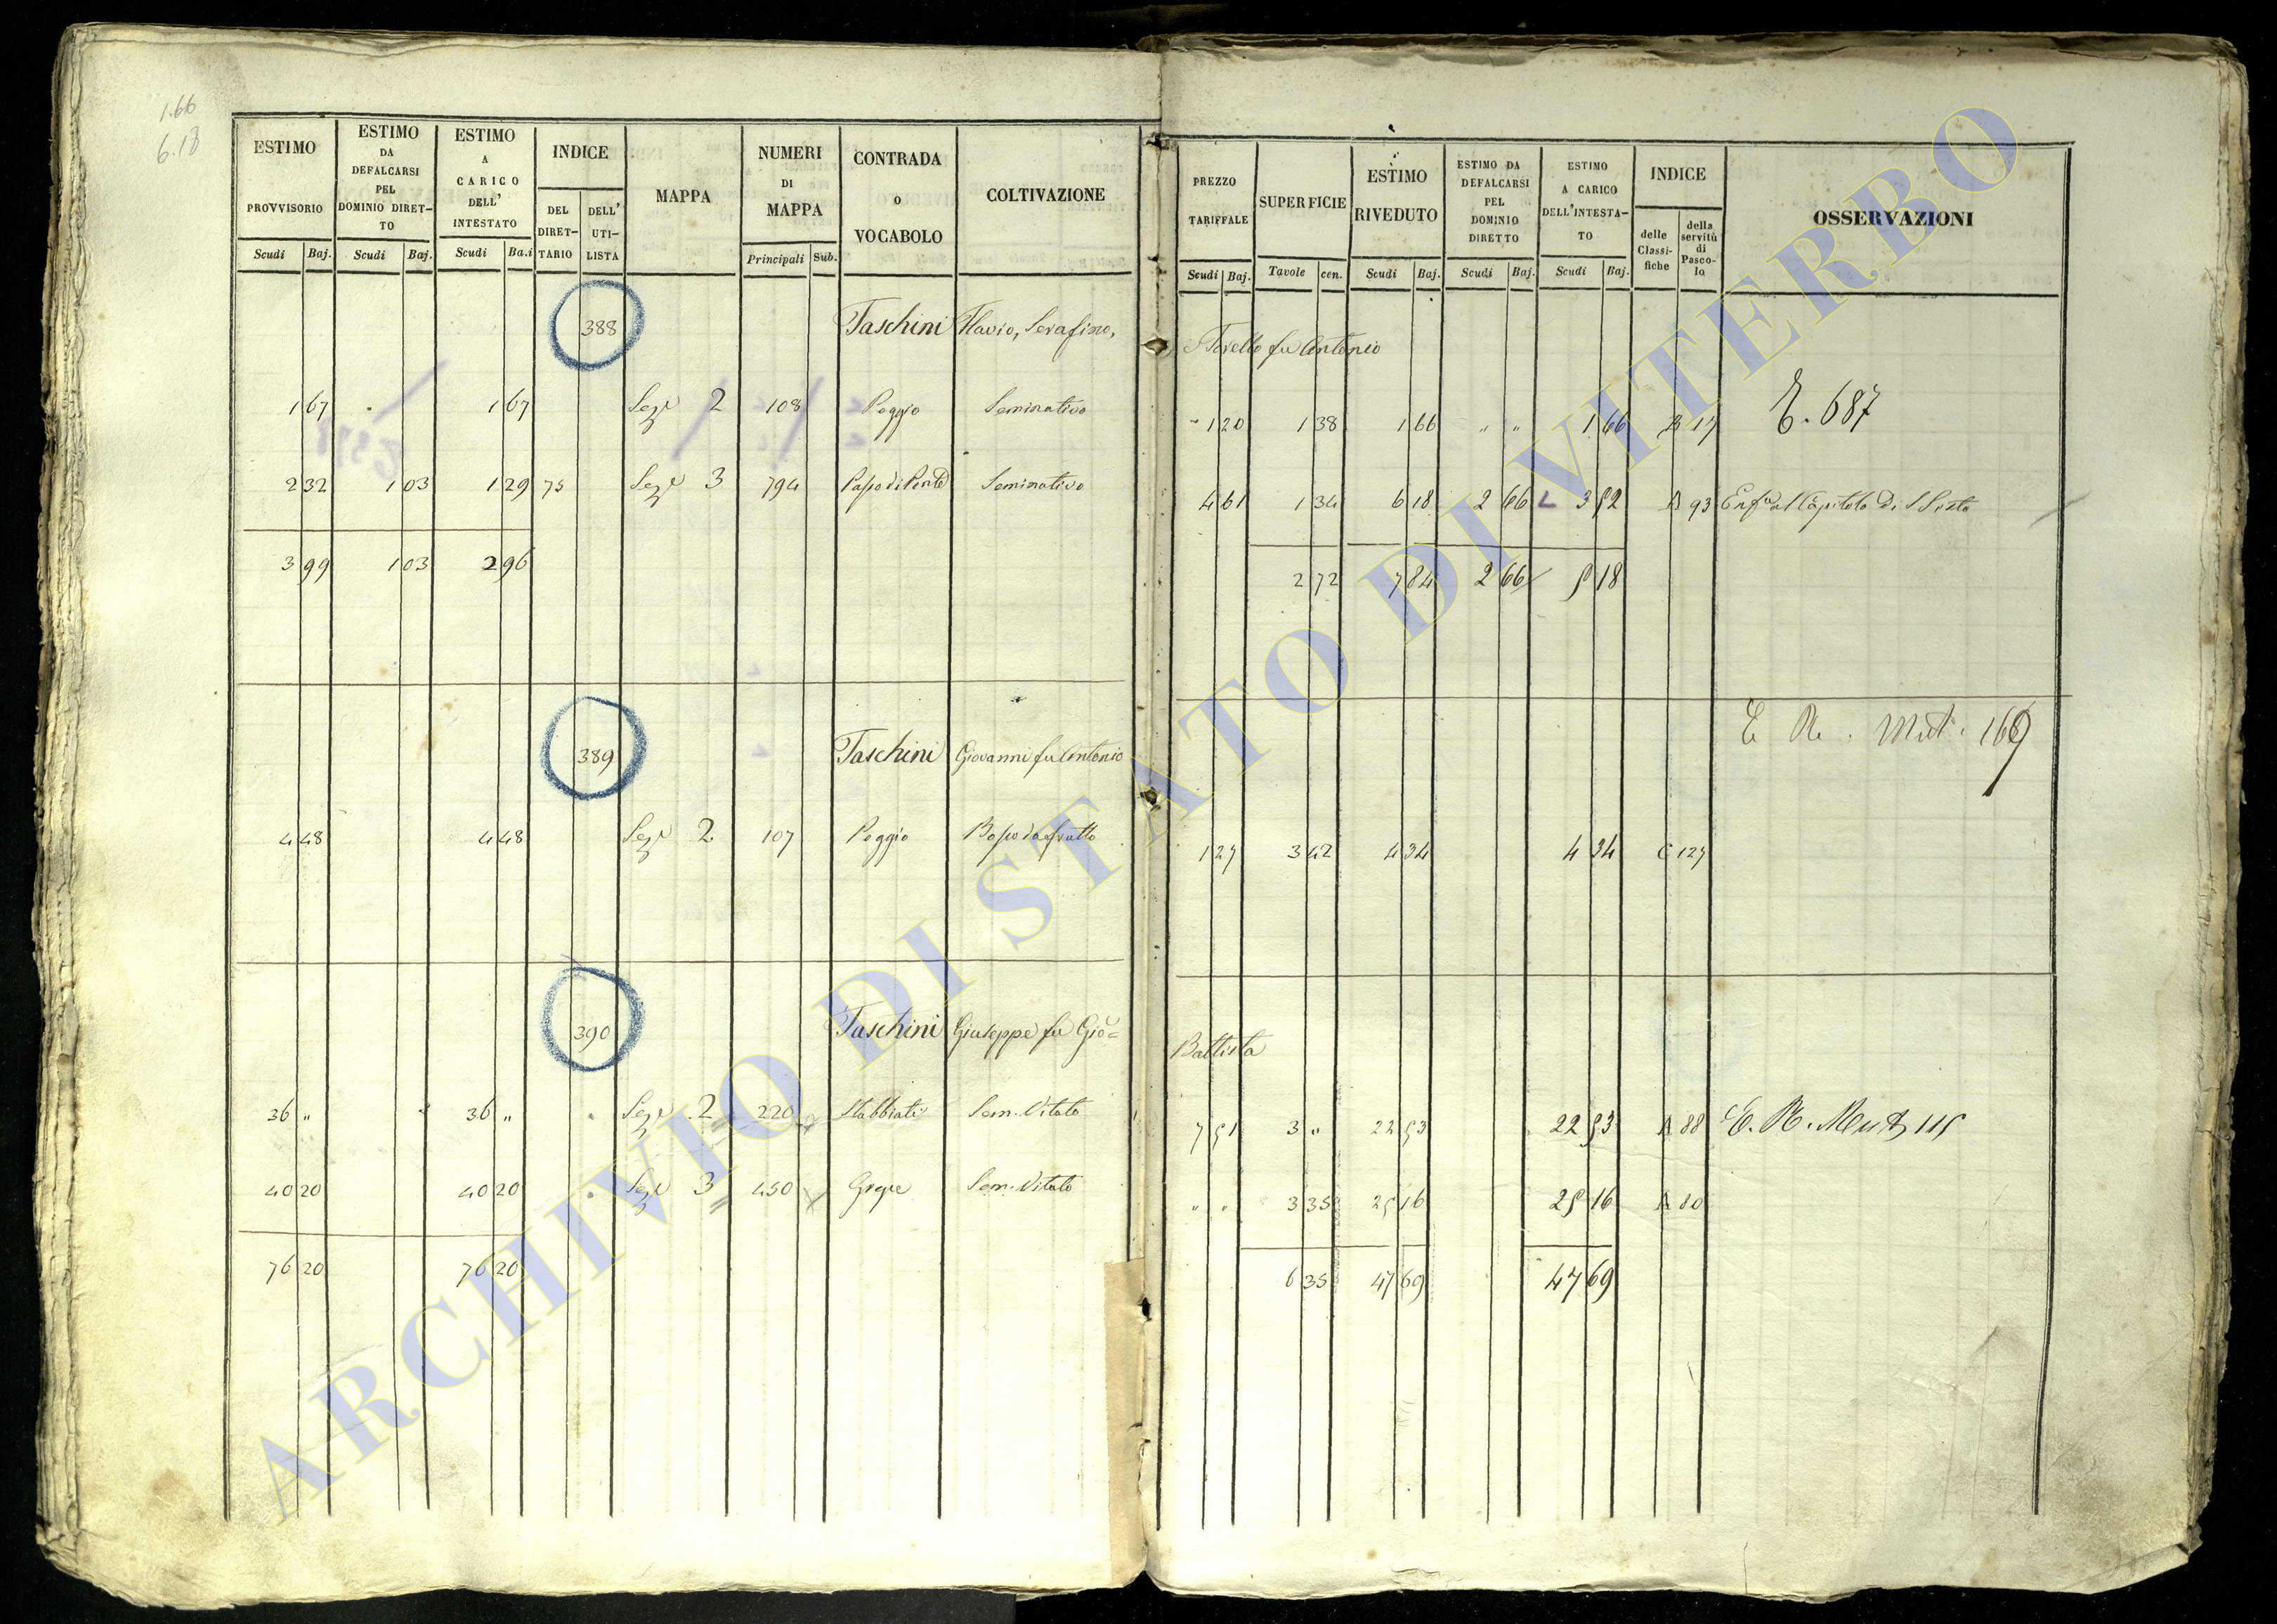 1.66
6.18
ESTIMO PROVVISORIO
ESTIMO DA DEFALCARSI PEL DOMINIO DIRET-TO
ESTIMO A CARICO DELL' INTESTATO
INDICE
DEL DIRET-TARIO
DELL' UTI-LISTA
MAPPA
NUMERI DI MAPPA
CONTRADA o VOCABOLO
COLTIVAZIONE
Scudi Baj. Scudi Baj. Scudi Ba.i Principali Sub.
PREZZO TARIFFALE
SUPERFICIE
ESTIMO RIVEDUTO
ESTIMO DA DEFALCARSI PEL DOMINIO DIRETTO
ESTIMO A CARICO DELL'INTESTA-TO
INDICE
delle Classi-fiche
della servitù di Pasco-lo
OSSERVAZIONI
Scudi Baj. Tavole cen. Scudi Baj. Scudi Baj. Scudi Baj.
388 Taschini Flavio, Serafino, fu Antonio
1 67 1 67 Sez.e 2 108 Poggio Seminativo 1 20 1 38 1 66 " " 1 66 B 17 E. 687
2 32 1 03 1 29 75 Sez.e 3 794 Seminativo 4 61 1 34 6 18 2 66 3 52 A 93
3 99 1 03 2 96 2 72 7 84 2 66 5 18
389 Taschini Giovanni fu Antonio E R. Mut. 169
4 48 4 48 Sez.e 2 107 Poggio 1 27 3 42 4 34 4 34 C 127
390 Taschini Giuseppe fu Gio= Battista
36 " 36 " Sez.e 2 220 Stabbiati Sem. Vitato 7 51 3 " 22 53 22 53 A 88 E. R. Mut. 115
40 20 40 20 Sez.e 3 450 Sem. Vitato " " 3 35 25 16 25 16 A 80
76 20 76 20 6 35 47 69 47 69
ARCHIVIO DI STATO DI VITERBO